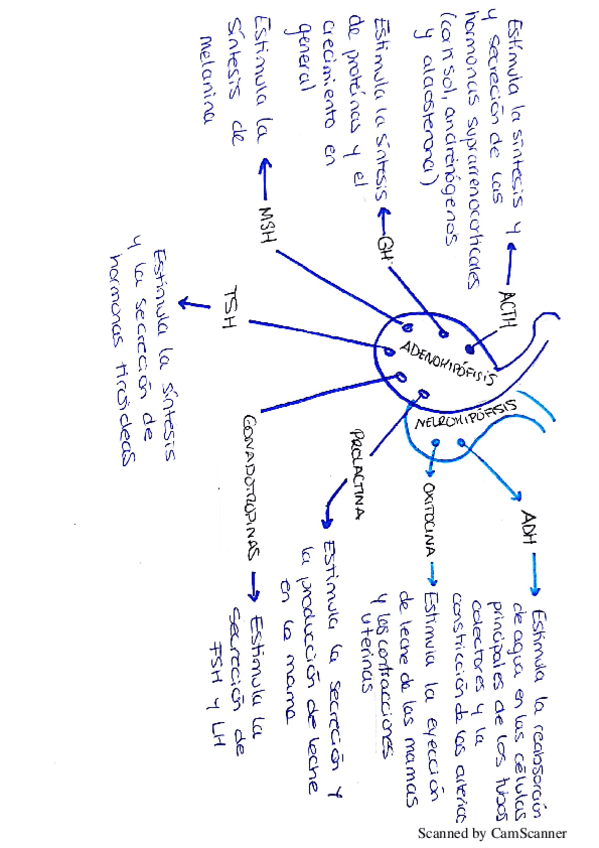 Estimula la síntesis y
y secreción de las
hormonas suprarrenocorticales
(cortisol, andrógenos
y aldosterona)
ACTH
Estimula la síntesis
de proteínas y el
crecimiento en
general
GH
Estimula la
síntesis de
melanina
MSH
TSH
Estimula la síntesis
y la secreción de
hormonas tiroideas
ADENOHIPÓFISIS
NEUROHIPÓFISIS
GONADOTROPINAS
Estimula la
secreción de
FSH y LH
PROLACTINA
Estimula la secreción y
la producción de leche
en la mama
OXITOCINA
Estimula la eyección
de leche de las mamas
y las contracciones
uterinas
ADH
Estimula la reabsorción
de agua en las células
principales de los tubos
colectores y la
constricción de las arterias
Scanned by CamScanner